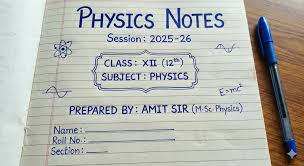 PHYSICS NOTES
Session : 2025-26
CLASS : XII (12th)
SUBJECT : PHYSICS
E=mc²
PREPARED BY : AMIT SIR (M.Sc Physics)
Name :
Roll No :
Section :